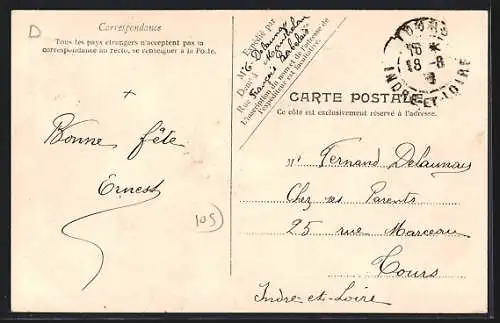 D
Correspondance
Tous les pays étrangers n'acceptent pas la
correspondance au recto, se renseigner à la Poste.
+
Bonne fête
Ernest
105
Expédié par
Mr G. Delaunay
Dem. à
Rue François Rabelais
L'inscription du nom et de l'adresse de
l'expéditeur est facultative.
TOURS
16 *
18 -8
INDRE-ET-LOIRE
CARTE POSTALE
Ce côté est exclusivement réservé à l'adresse.
Mr Fernand Delaunay
Chez ses Parents
25 rue Marceau
Tours
Indre-et-Loire